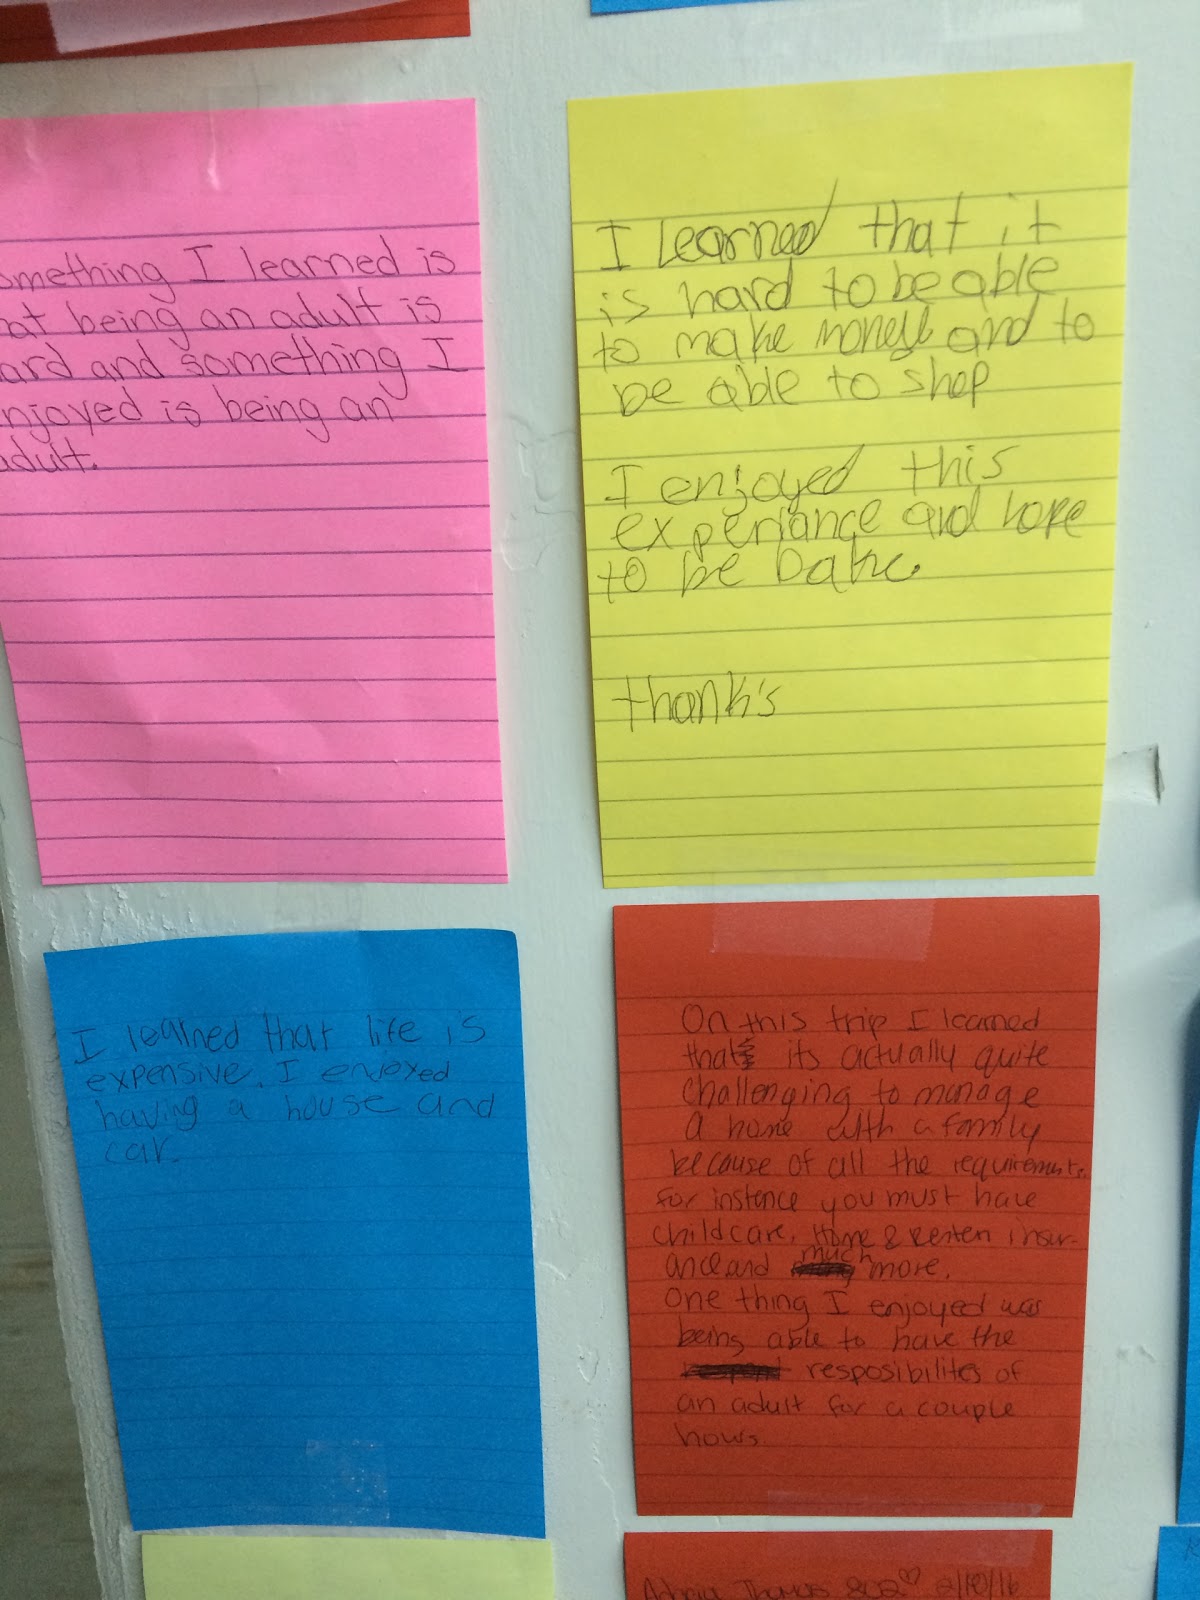 omething I learned is
hat being an adult is
ard and something I
njoyed is being an
adult.
I learned that it
is hard to be able
to make money and to
be able to shop
I enjoyed this
experiance and hope
to be bake.
thank's
I learned that life is
expensive. I enjoyed
having a house and
car.
On this trip I learned
that its actually quite
challenging to manage
a home with a family
because of all the requirements.
for instence you must have
childcare, Home & Renten insur-
ance and much more.
One thing I enjoyed was
being able to have the
resposibilites of
an adult for a couple
hours.
Thomas 802♡ 2/10/16